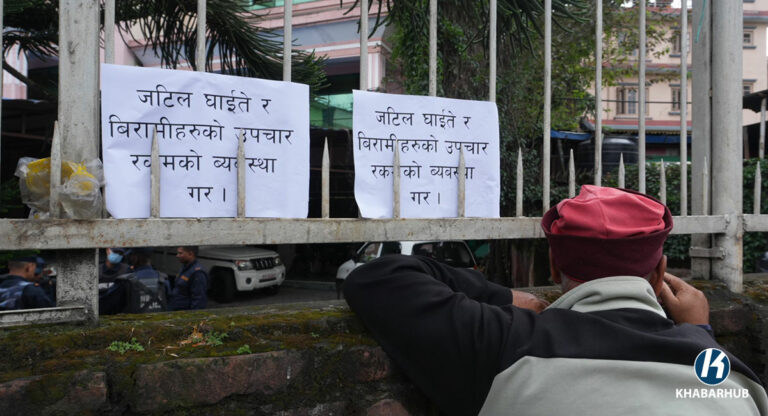 जटिल घाईते र
बिरामीहरुको उपचार
रकमको ब्यवस्था
गर ।
जटिल घाईते र
बिरामीहरुको उपचार
रकमको ब्यवस्था
गर ।
K
KHABARHUB